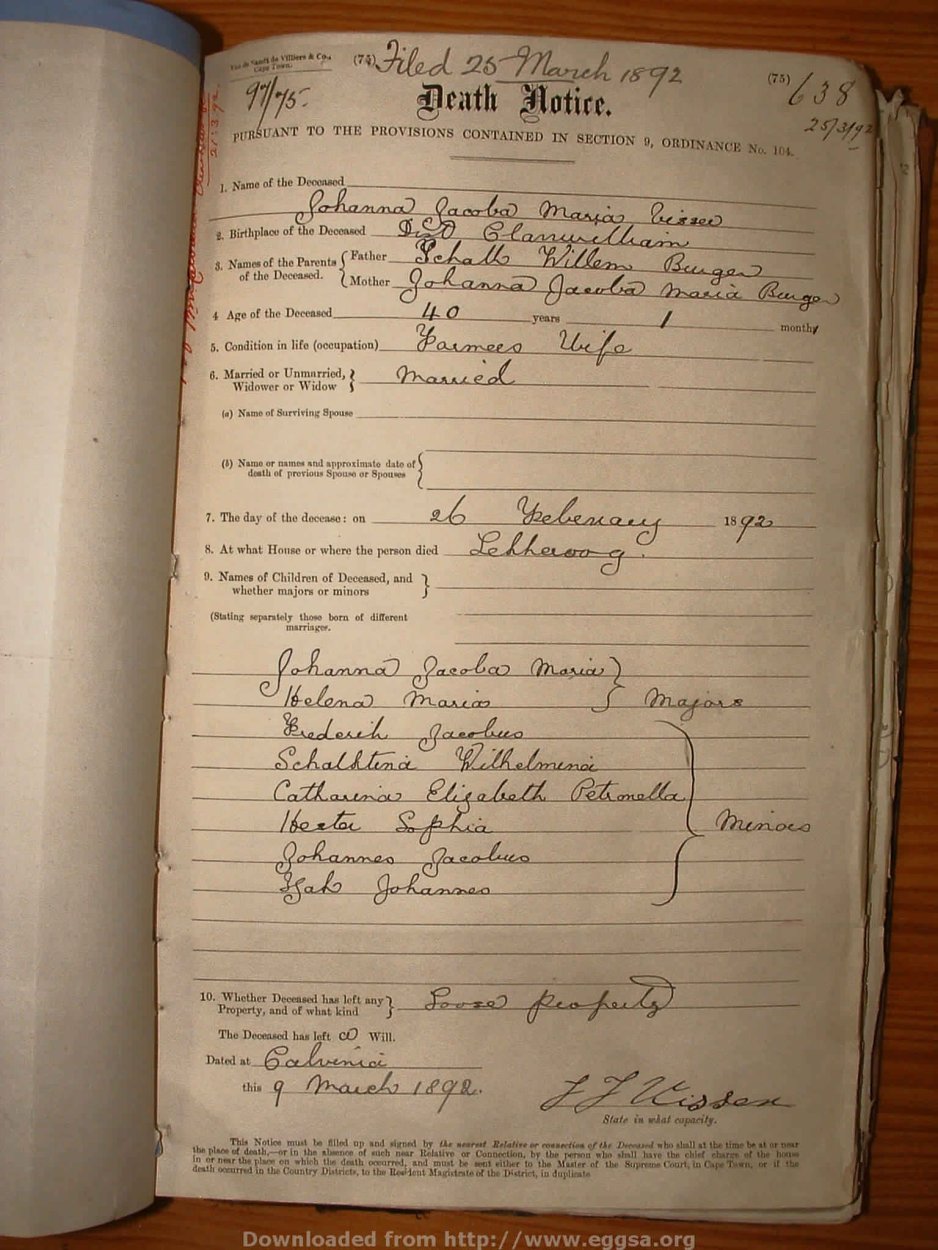 Van de Sandt de Villiers & Co.,
Cape Town.
(75) Filed 25 March 1892 (75) 638
97/75. 25/3/92
Death Notice.
PURSUANT TO THE PROVISIONS CONTAINED IN SECTION 9, ORDINANCE No. 104.
1. Name of the Deceased
Johanna Jacoba Maria Visser
2. Birthplace of the Deceased Dist Clanwilliam
3. Names of the Parents of the Deceased. { Father Schalk Willem Burger
Mother Johanna Jacoba Maria Burger
4 Age of the Deceased 40 years 1 month
5. Condition in life (occupation) Farmers Wife
6. Married or Unmarried, } Married
Widower or Widow
(a) Name of Surviving Spouse
(b) Name or names and approximate date of
death of previous Spouse or Spouses
7. The day of the decease: on 26 February 1892
8. At what House or where the person died Lekkeroog.
9. Names of Children of Deceased, and
whether majors or minors
(Stating separately those born of different
marriages.
Johanna Jacoba Maria }
Helena Maria } Majors
Frederik Jacobus
Schalktina Wilhelmina
Catharina Elizabeth Petronella
Hester Sophia Minors
Johannes Jacobus
Isak Johannes
10. Whether Deceased has left any } Loose property
Property, and of what kind
The Deceased has left a Will.
Dated at Calvinia
this 9 March 1892. F J Visser
State in what capacity.
This Notice must be filled up and signed by the nearest Relative or connection of the Deceased who shall at the time be at or near
the place of death,—or in the absence of such near Relative or Connection, by the person who shall have the chief charge of the house
in or near the place on which the death occurred, and must be sent either to the Master of the Supreme Court, in Cape Town, or if the
death occurred in the Country Districts, to the Resident Magistrate of the District, in duplicate
Downloaded from http://www.eggsa.org